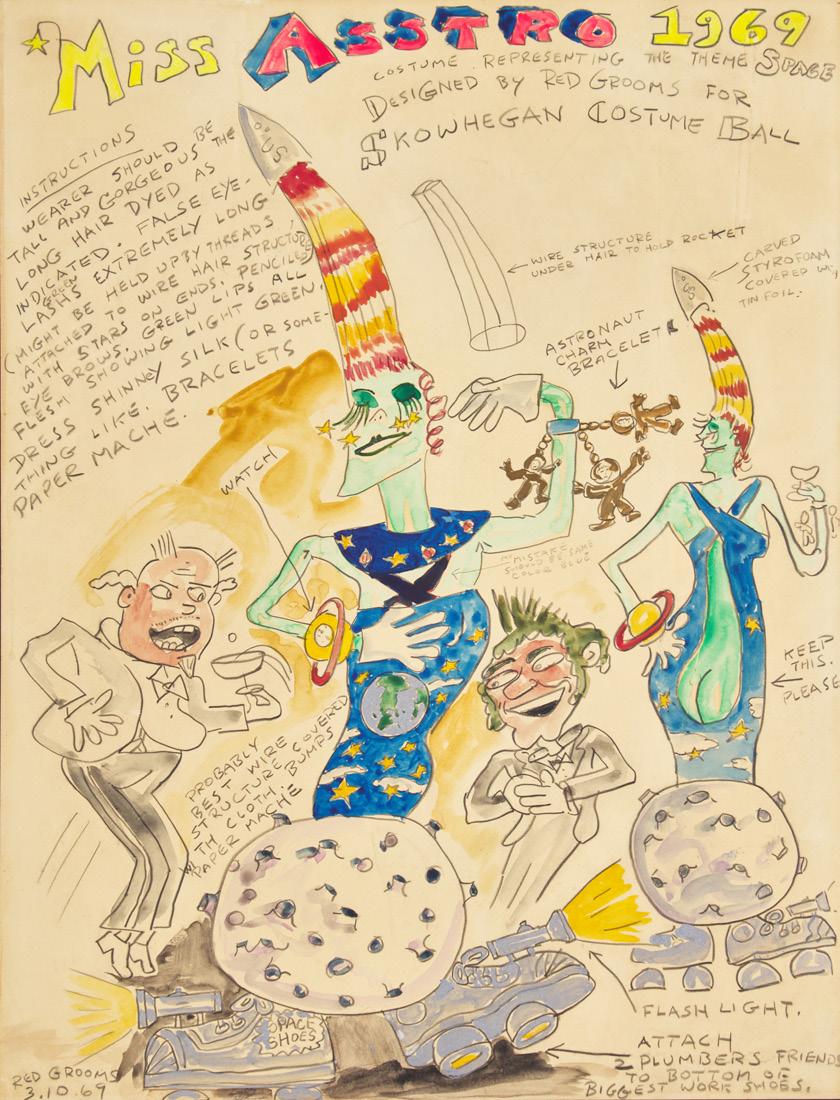 Miss ASSTRO 1969
COSTUME REPRESENTING THE THEME SPACE
DESIGNED BY RED GROOMS FOR
SKOWHEGAN COSTUME BALL
INSTRUCTIONS
WEARER SHOULD BE
TALL AND GORGEOUS THE
LONG HAIR DYED AS
INDICATED. FALSE EYE-
LASHS EXTREMELY LONG
GREEN
(MIGHT BE HELD UP BY THREADS
ATTACHED TO WIRE HAIR STRUCTURE
WITH STARS ON ENDS. PENCILED
EYE BROWS. GREEN LIPS ALL
FLESH SHOWING LIGHT GREEN.
DRESS SHINNEY SILK (OR SOME-
THING LIKE. BRACELETS
PAPER MACHE.
U.S.
WIRE STRUCTURE
UNDER HAIR TO HOLD ROCKET
CARVED
STYROFOAM
COVERED W
TIN FOIL.
US
ASTRONAUT
CHARM
BRACELET
WATCH
MISTAKE
SHOULD BE SAME
COLOR BLUE
KEEP
THIS.
PLEASE
PROBABLY
BEST WIRE
STRUCTURE COVERED
WITH CLOTH BUMPS
PAPER MACHE
SPACE
SHOES
FLASH LIGHT.
ATTACH
2 PLUMBERS FRIENDS
TO BOTTOM OF
BIGGEST WORK SHOES.
RED GROOMS
3.10.69